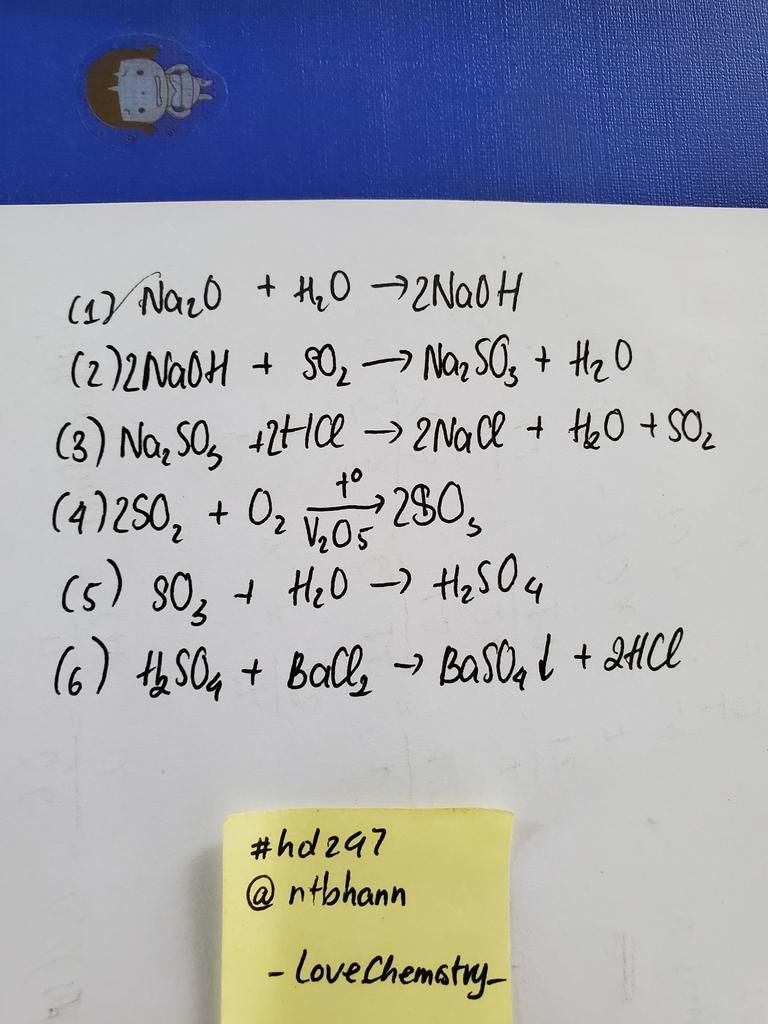 (1) Na₂O + H₂O → 2NaOH
(2) 2NaOH + SO₂ → Na₂SO₃ + H₂O
(3) Na₂SO₃ + 2HCl → 2NaCl + H₂O + SO₂
(4) 2SO₂ + O₂ t° → V₂O₅ 2SO₃
(5) SO₃ + H₂O → H₂SO₄
(6) H₂SO₄ + BaCl₂ → BaSO₄↓ + 2HCl
#hd297
@ntbhann
- LoveChemistry -